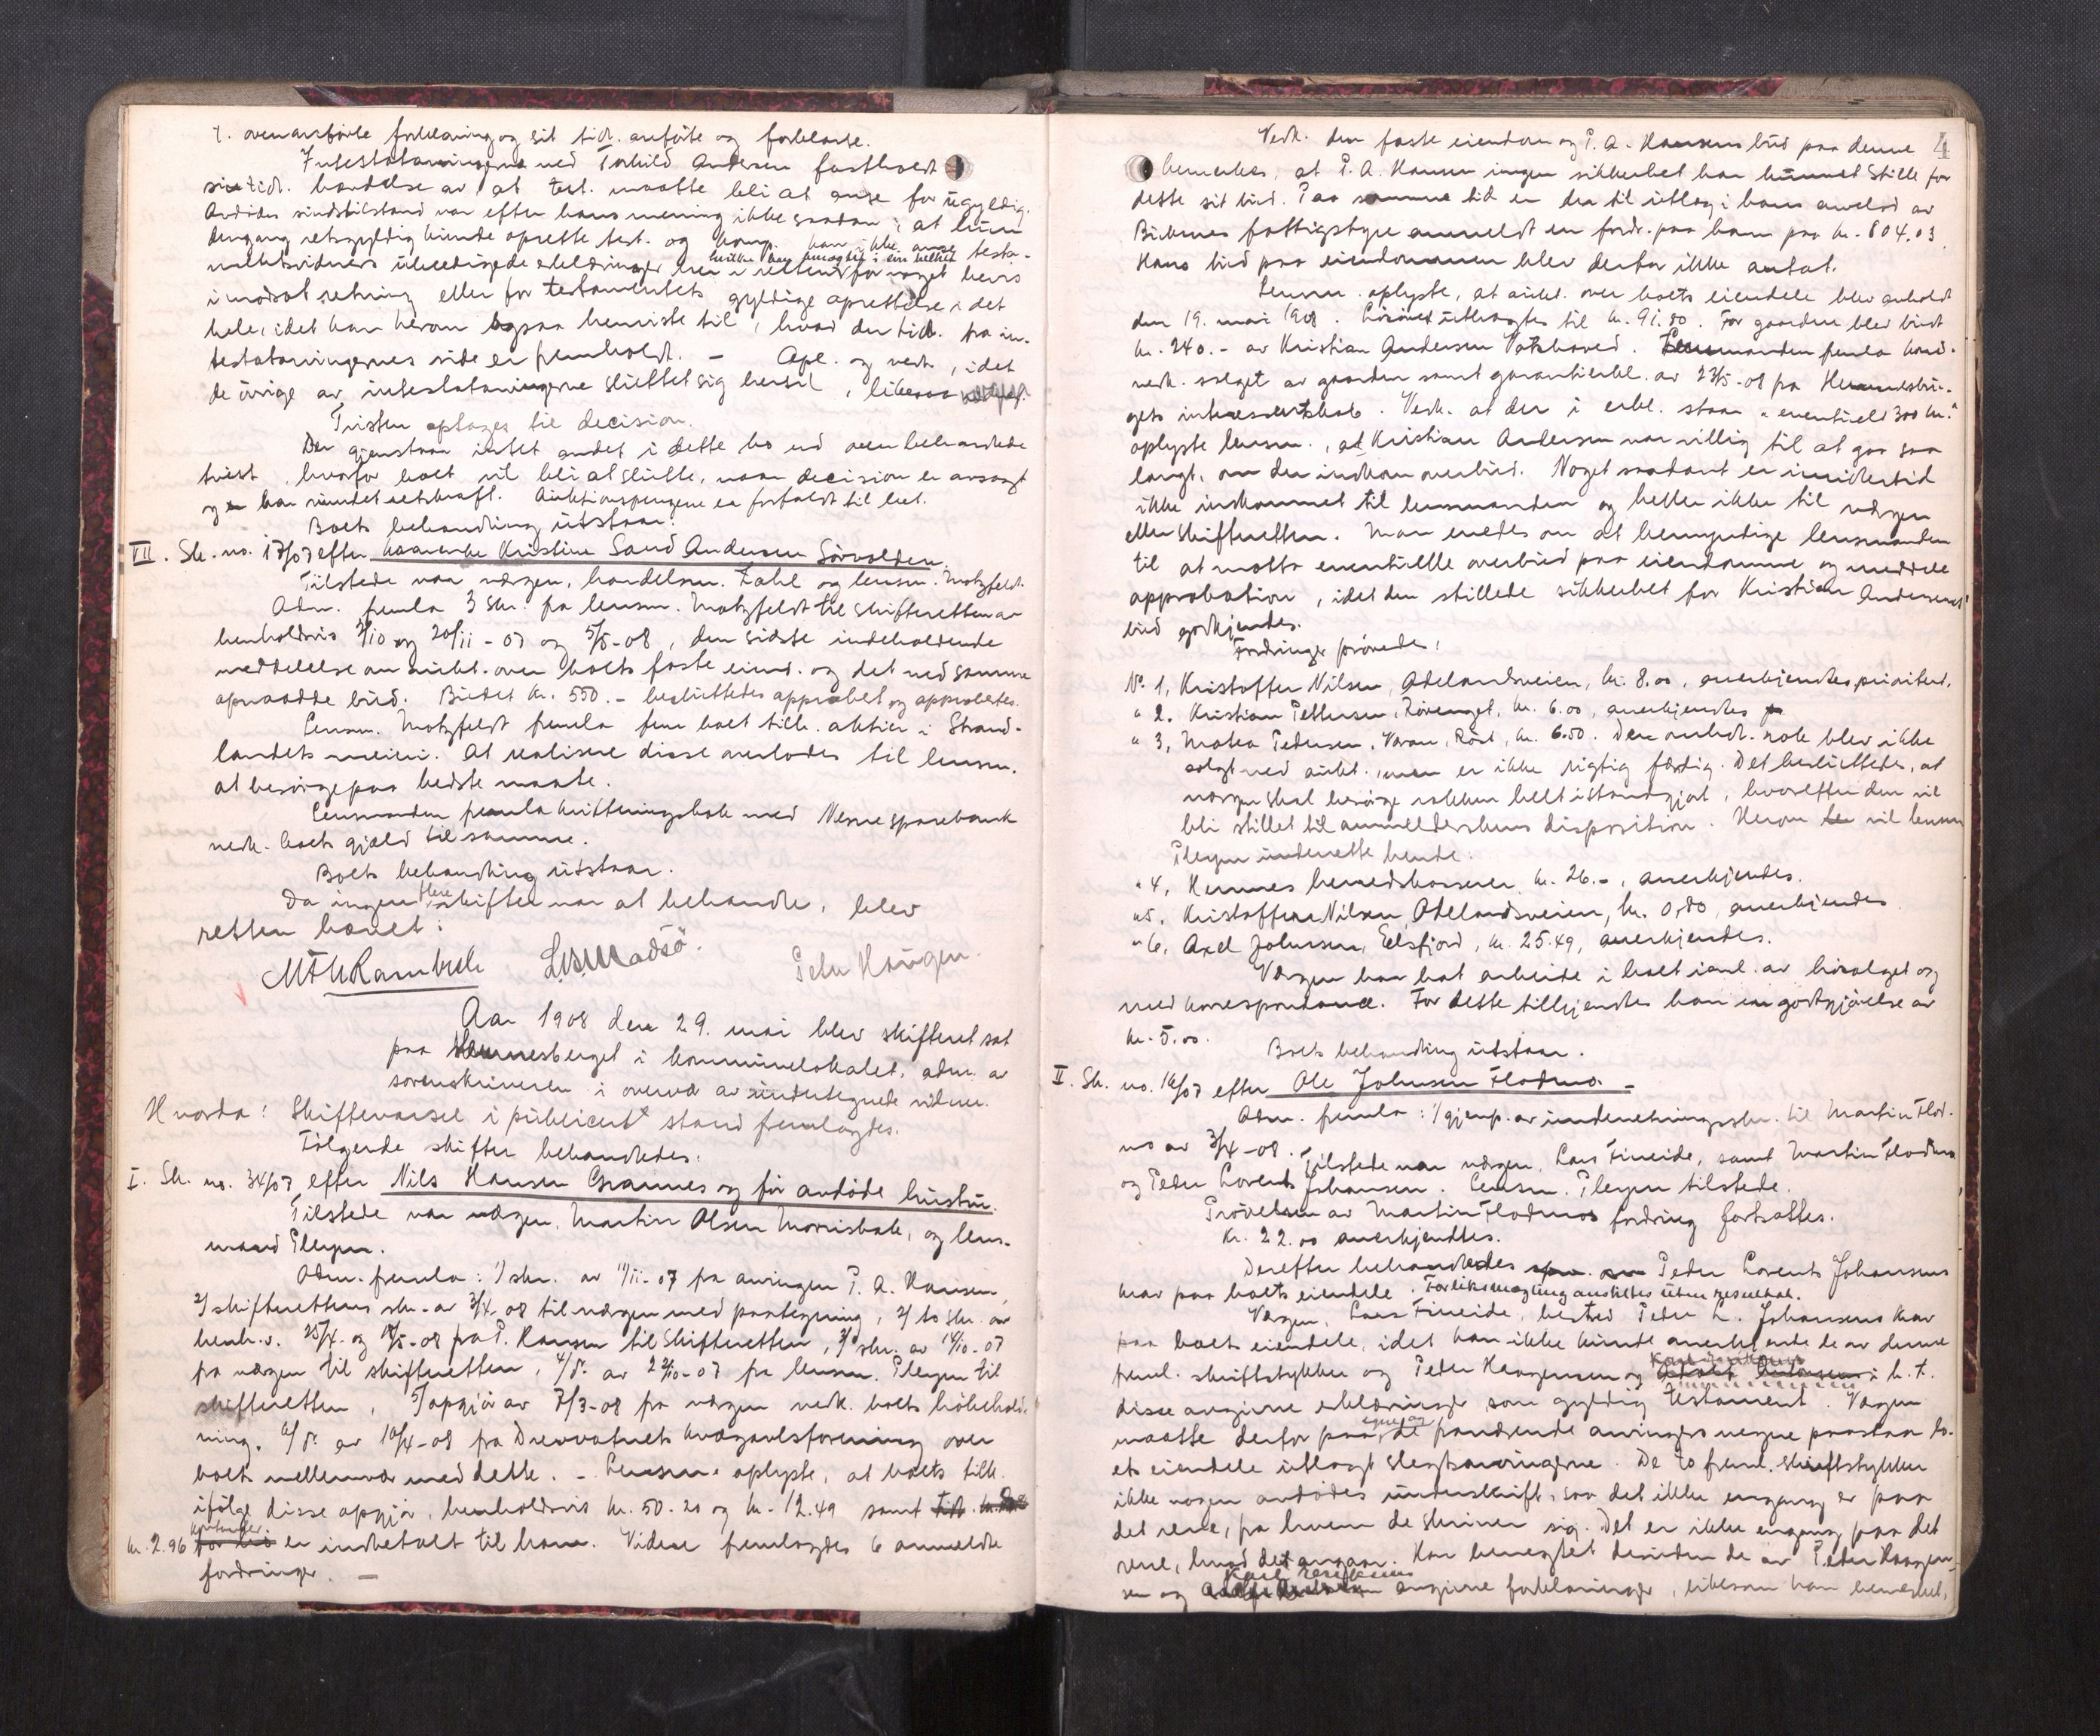 t. ovenanførte forklaring og sit tidl. anførte og forklarte.
Intestatarvingerne ved Torkild Andersen fastholdt
sin tidl. benektelse av, at test. maatte bli at anse for ugyldig.
Avdødes sindstilstand var efter hans mening ikke saadan, at hun
dengang retsgyldig kunde oprette test. og komp. kan ikke anse testa-
mentsvidners ubeedigede erklæringer her i retten for noget bevis
i motsat retning eller for testamentets gyldige oprettelse i det
hele, idet han herom ogsaa henviste til, hvad der tidl. fra in-
testatarvingernes side er fremholdt. – Opl. og vedk., idet
de øvrige av intestatarvingerne sluttet sig hertil, likesaa
Tvisten optages til decision.
Der gjenstaar intet andet i dette bo end ovenbehandlede
tvist, hvorfor boet vil bli at slutte, naar decision er avsagt
og har vundet retskraft. Auktionspengene er forfaldt til
Boets behandling utstaar.
VII. Sk. no. 17/07 efter Kristine Sand Andersen Sørvolden.
Tilstede var værgen, handelsm. Dahl og lensm. Motzfeldt.
Adm. fremla 3 skr. fra lensm. Motzfeldt til skifteretten av
henholdsvis 3/10 og 20/11 - 07 og 5/5-08, den sidste indeholdende
meddelelse om aukt. over boets faste eiend. og det ved samme
opnaadde bud. Budet kr. 550.- besluttedes approbert og approbertes.
Lensm. Motzfeldt fremla fem boet tilh. aktier i Strand-
landets meieri. At realisere disse overlodes til lensm.
at besørge paa bedste maate.
Lensmanden fremla kvitteringsbok med Nesne sparebank
vedk. boets gjæld til samme.
Boets behandling utstaar.
Da ingen flere skifter var at behandle, blev
retten hævet:
MFURambech
Peder Haugen.
Aar 1908 den 29. mai blev skifteret sat
paa Hemnesberget i kommunelokalet, adm. av
sorenskriveren i overvær av undertegnede vidner.
Hvorda: Skiftevarsel i publicert stand fremlagdes.
Følgende skifter behandledes:
I. Sk. no. 34/07 efter Nils Hansen Grannes og før avdøde hustru.
Tilstede var værgen, Martin Olsen Mornisbak, og lens-
mand Pleym.
Adm. fremla: 1/ skr. av 11/11-07 fra arvingen P. A. Hansen,
2/ skifterettens skr. av 3/4-08 til værgen med paategning, 2/ to skr. av
henh.v. 25/4. og 18/5-08 fra P. Hansen til skifteretten, 3/ skr. av 14/10-07
fra værgen til skifteretten, 4/ do. av 22/10-07 fra lensm. Pleym til
skifteretten, 5/ opgjør av 7/3-08 fra værgen vedk. boets
ning, 6/ do. av 10/4-08 fra Drevvatnets kvægavlsforening over
boets mellemvær med dette. - Lensm. oplyste, at boets tilh.
ifølge disse opgjør, henholdsvis kr. 50.20 og kr. 12.49 samt
kr. 2.96 kontanter er indbetalt til ham. Videre fremlagdes 6 anmeldte
fordringer. –
4
Vedk. den faste eiendom og P. A. Hansens bud paa denne
bemerkes, at P. A. Hansen ingen sikkerhet har kunnet stille for
dette sit bud. Paa samme tid er der til utlæg i hans arvelod av
fattigstyre anmeldt en fordr. paa ham paa kr. 604.03.
Hans bud paa eiendommen blev derfor ikke antat.
Lensm. oplyste, at aukt. over boets eiendele blev avholdt
den 19. mai 1908. Løsøret utbragtes til kr. 91.80. For gaarden blev budt
kr. 240.- av Kristian Andersen. Lensmanden fremla kond.
vedk. salget av gaarden samt garantierkl. av 23/5-08 fra Hemnesber-
gets interessentskab. Vedk. at der i erkl. staar „eventuelt 300 kr.“
oplyste lensm., at Kristian Andersen var villig til at gaa saa
langt, om der indkom overbud. Noget saadant er imidlertid
ikke indkommet til lensmanden og heller ikke til værgen
eller skifteretten. Man enedes om at bemyndige lensmanden
til at motta eventuelle overbud paa eiendommen og meddele
approbation, idet den stillede sikkerhet for Kristian Andersens
bud godkjendes.
Fordringer prøvede:
No 1, Kristoffer Nilsen, Adelandsveien, kr. 8.00, anerkjendtes, prioritert.
" 2. Kristian Pettersen, Røvenget, kr. 6.00, anerkjendtes
" 3, Matea Pedersen, Varan, Röst, kr. 6.50. Den omhdl. rok blev ikke
solgt ved aukt., men er ikke rigtig færdig. Det besluttedes, at
værgen skal besørge rokken helt istandgjort, hvorefter den vil
bli stillet til anmelderskens disposition. Herom vil lensm.
Pleym underrette hende.
" 4, Hemnes herredskasserer, kr. 26.-, anerkjendes.
" 5. Kristoffer Nilsen, Adelandsveien, kr. 0,80, anerkjendes
" 6, Axel Johnsen, Elsfjord, kr. 25.49, anerkjendes.
Værgen har hat arbeide i boet i anl. av høsalget og
med korrespondance. For dette tilkjendtes han en godtgjørelse av
kr. 5.00.
Boets behandling utstaar.
II. Sk. no. 16/07 efter Ole Johnsen Flodmo. –
Adm. fremla: 1/ gjenp. av underretningsskr. til Martin Flod-
mo av 3/4-08. Tilstede var værgen, Lars Fineide, samt Martin Flodmo
og Peder Lorents Johansen. Lensm. Pleym tilstede.
Prøvelsen av Martin Flodmos fordring fortsattes.
Kr. 22.00 anerkjendtes.
Derefter behandledes Peder Lorents Johansens
krav paa boets eiendele. Forliksmægling anstiltes uten resultat.
Værgen, Lars Fineide, bestred Peder L. Johansens krav
paa boets eiendele, idet han ikke kunde anerkjende de av denne
freml. skriftstykker og Peder Haagensen og i h. t.
disse avgivne erklæringer som gyldig testament. Værgen
maatte derfor paa egne og de fraværende arvingers vegne paastaa bo-
ets eiendele utlagt slegtsarvingerne. De to freml. skriftstykker
ikke nogen avdødes underskrift, saa det ikke engang er paa
det rene, fra hvem de skriver sig. Det er ikke engang paa det
rene, hvad det angaar. Han benegtet desuden de av Peder Haagen-
sen og avgivne forklaringer, likesom han benegtet,